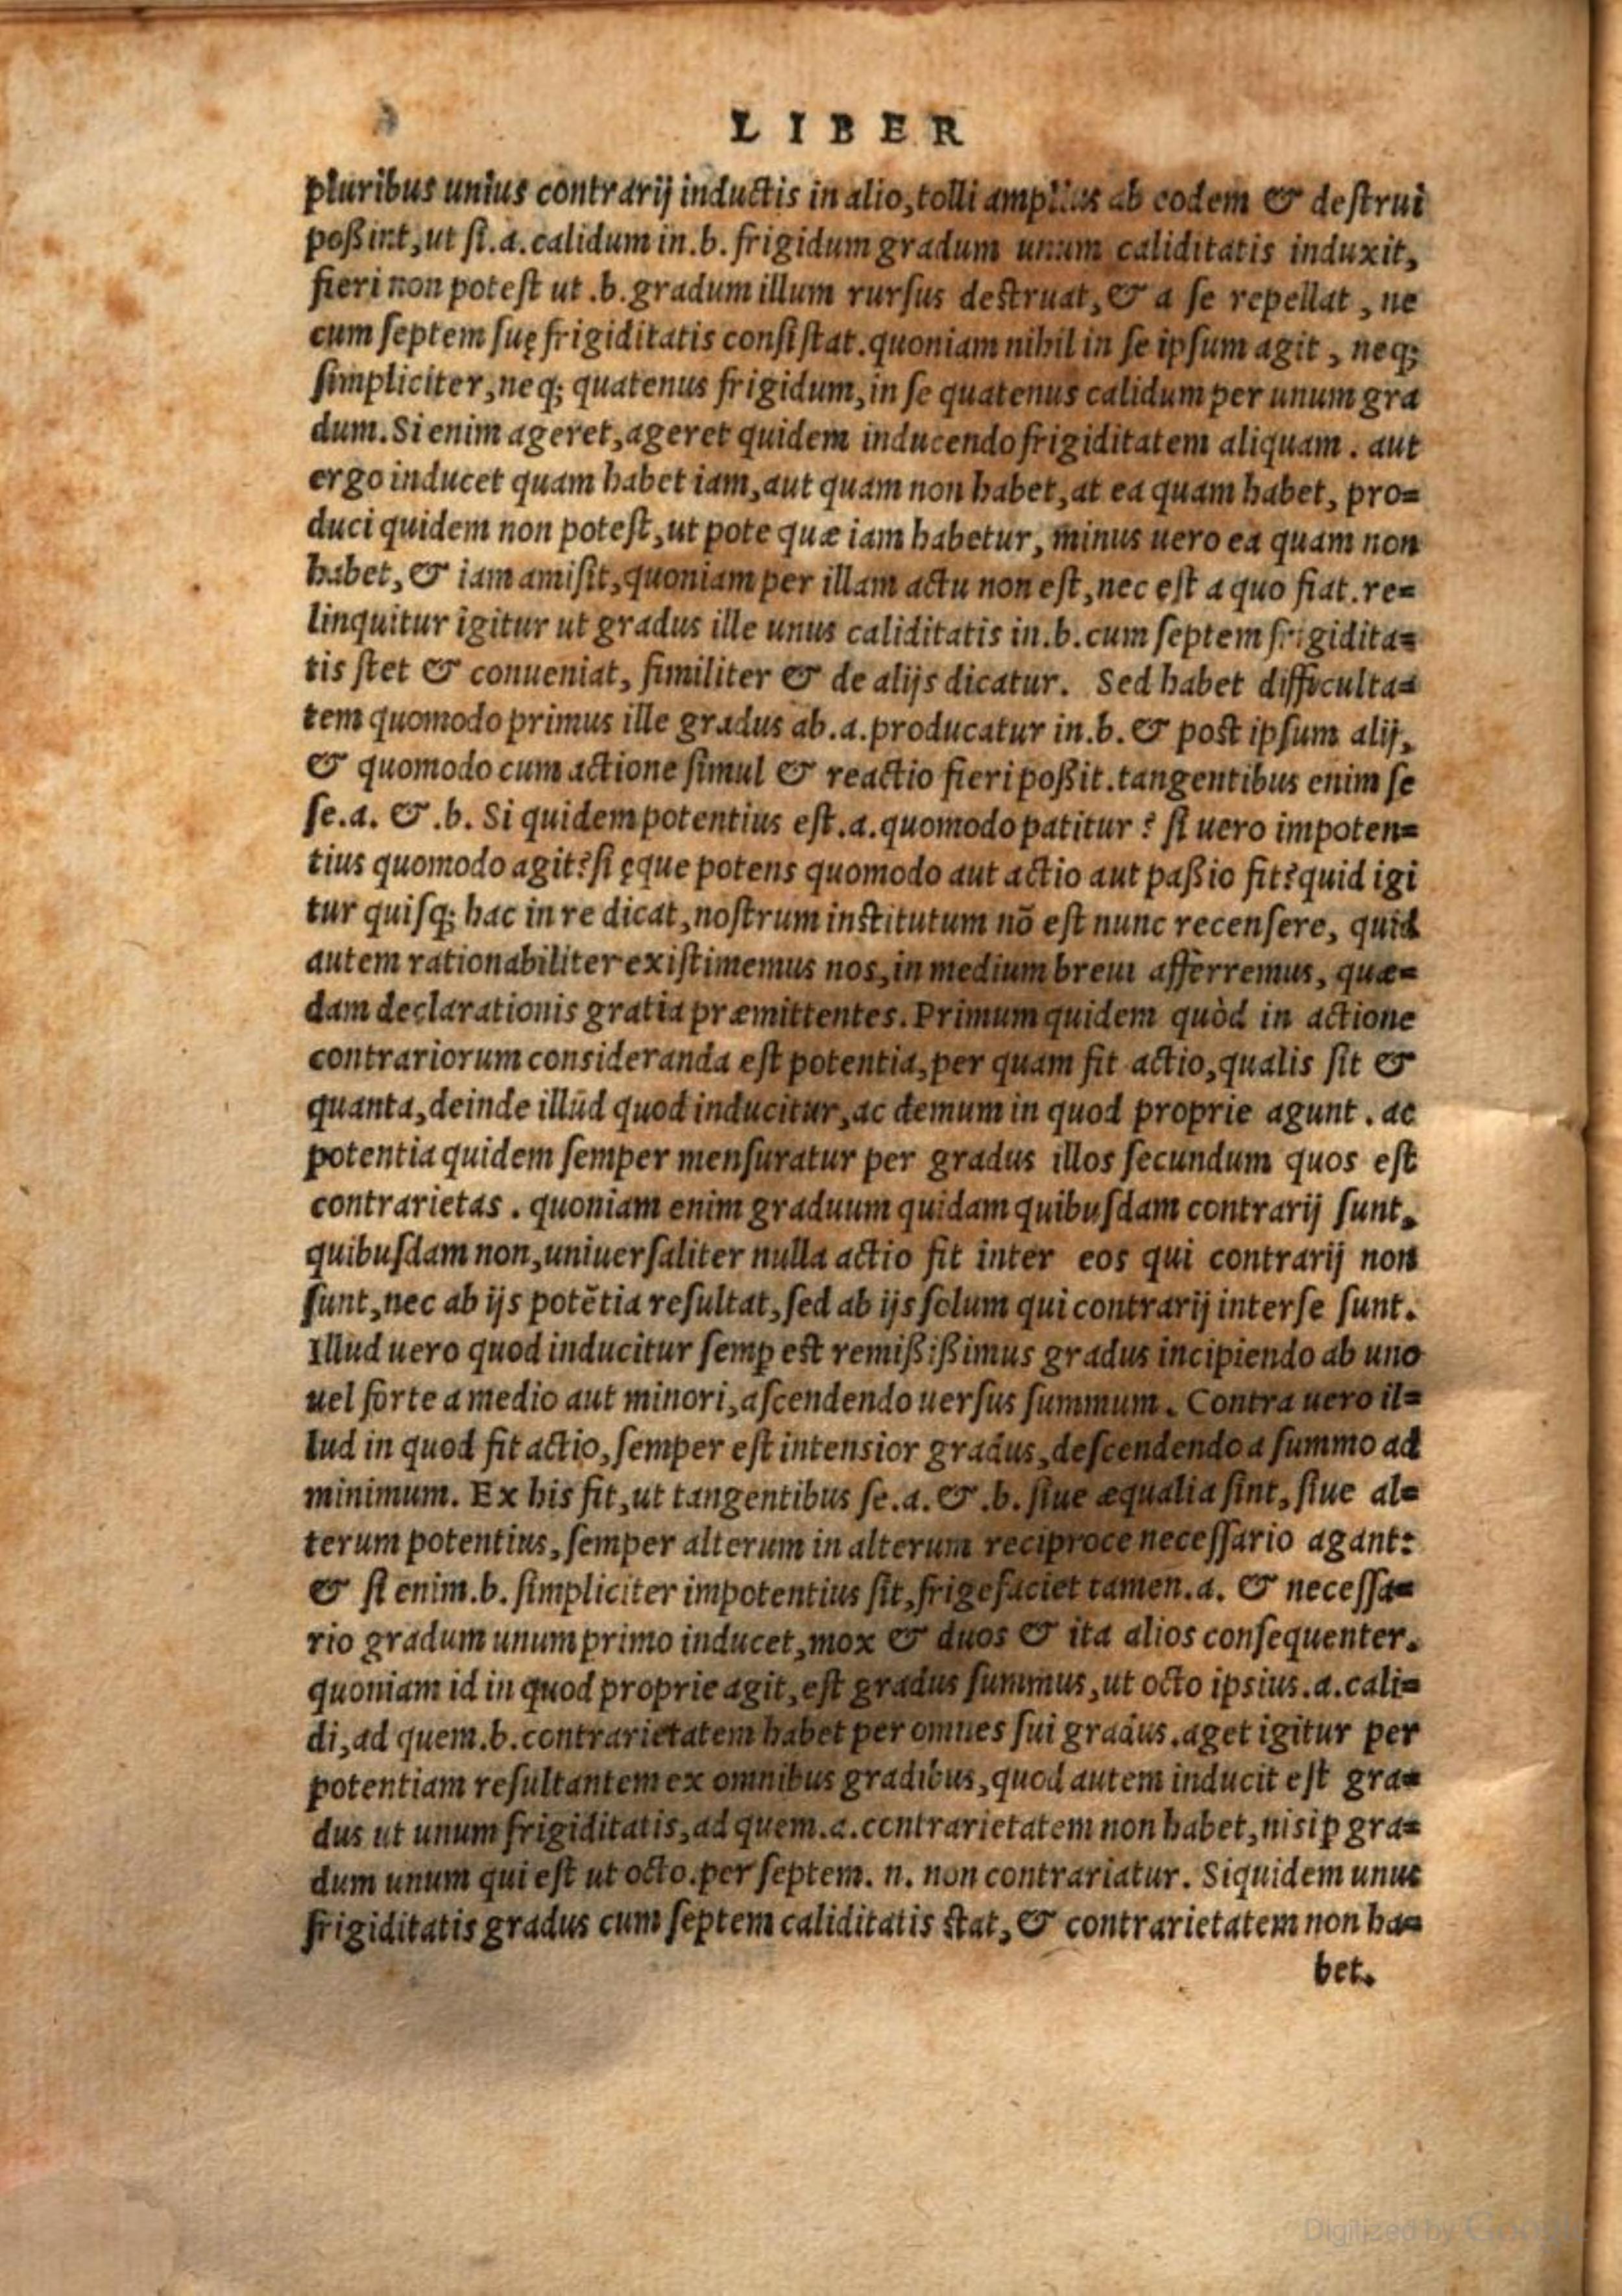 LIBER
pluribus unius contrarij inductis in alio, tolli amplius ab eodem & destrui
poßint, ut si .a. calidum in .b. frigidum gradum unum caliditatis induxit,
fieri non potest ut .b. gradum illum rursus destruat, & a se repellat, ne
cum septem suę frigiditatis consistat. quoniam nihil in se ipsum agit, neq;
simpliciter, neq; quatenus frigidum, in se quatenus calidum per unum gra
dum. Si enim ageret, ageret quidem inducendo frigiditatem aliquam. aut
ergo inducet quam habet iam, aut quam non habet, at ea quam habet, pro=
duci quidem non potest, ut pote quæ iam habetur, minus uero ea quam non
habet, & iam amisit, quoniam per illam actu non est, nec est a quo fiat. re=
linquitur igitur ut gradus ille unus caliditatis in .b. cum septem frigidita=
tis stet & conueniat, similiter & de alijs dicatur. Sed habet difficulta=
tem quomodo primus ille gradus ab .a. producatur in .b. & post ipsum alij,
& quomodo cum actione simul & reactio fieri poßit. tangentibus enim se
se .a. & .b. Si quidem potentius est .a. quomodo patitur? si uero impoten=
tius quomodo agit? si ęque potens quomodo aut actio aut paßio fit? quid igi
tur quisq; hac in re dicat, nostrum institutum nõ est nunc recensere, quid
autem rationabiliter existimemus nos, in medium breui afferremus, quæ=
dam declarationis gratia præmittentes. Primum quidem quòd in actione
contrariorum consideranda est potentia, per quam fit actio, qualis sit &
quanta, deinde illud quod inducitur, ac demum in quod proprie agunt. ac
potentia quidem semper mensuratur per gradus illos secundum quos est
contrarietas. quoniam enim graduum quidam quibusdam contrarij sunt,
quibusdam non, uniuersaliter nulla actio fit inter eos qui contrarij non
sunt, nec ab ijs potẽtia resultat, sed ab ijs solum qui contrarij inter se sunt.
Illud uero quod inducitur semꝑ est remißißimus gradus incipiendo ab uno
uel forte a medio aut minori, ascendendo uersus summum. Contra uero il=
lud in quod fit actio, semper est intensior gradus, descendendo a summo ad
minimum. Ex his fit, ut tangentibus se .a. & .b. siue æqualia sint, siue al=
terum potentius, semper alterum in alterum reciproce necessario agant:
& si enim .b. simpliciter impotentius sit, frigefaciet tamen .a. & necessa=
rio gradum unum primo inducet, mox & duos & ita alios consequenter.
quoniam id in quod proprie agit, est gradus summus, ut octo ipsius .a. cali=
di, ad quem .b. contrarietatem habet per omnes sui gradus. aget igitur per
potentiam resultantem ex omnibus gradibus, quod autem inducit est gra=
dus ut unum frigiditatis, ad quem .a. contrarietatem non habet, nisi ꝑ gra=
dum unum qui est ut octo. per septem. n. non contrariatur. Siquidem unus
frigiditatis gradus cum septem caliditatis stat, & contrarietatem non ha=
bet.
Digitized by Google